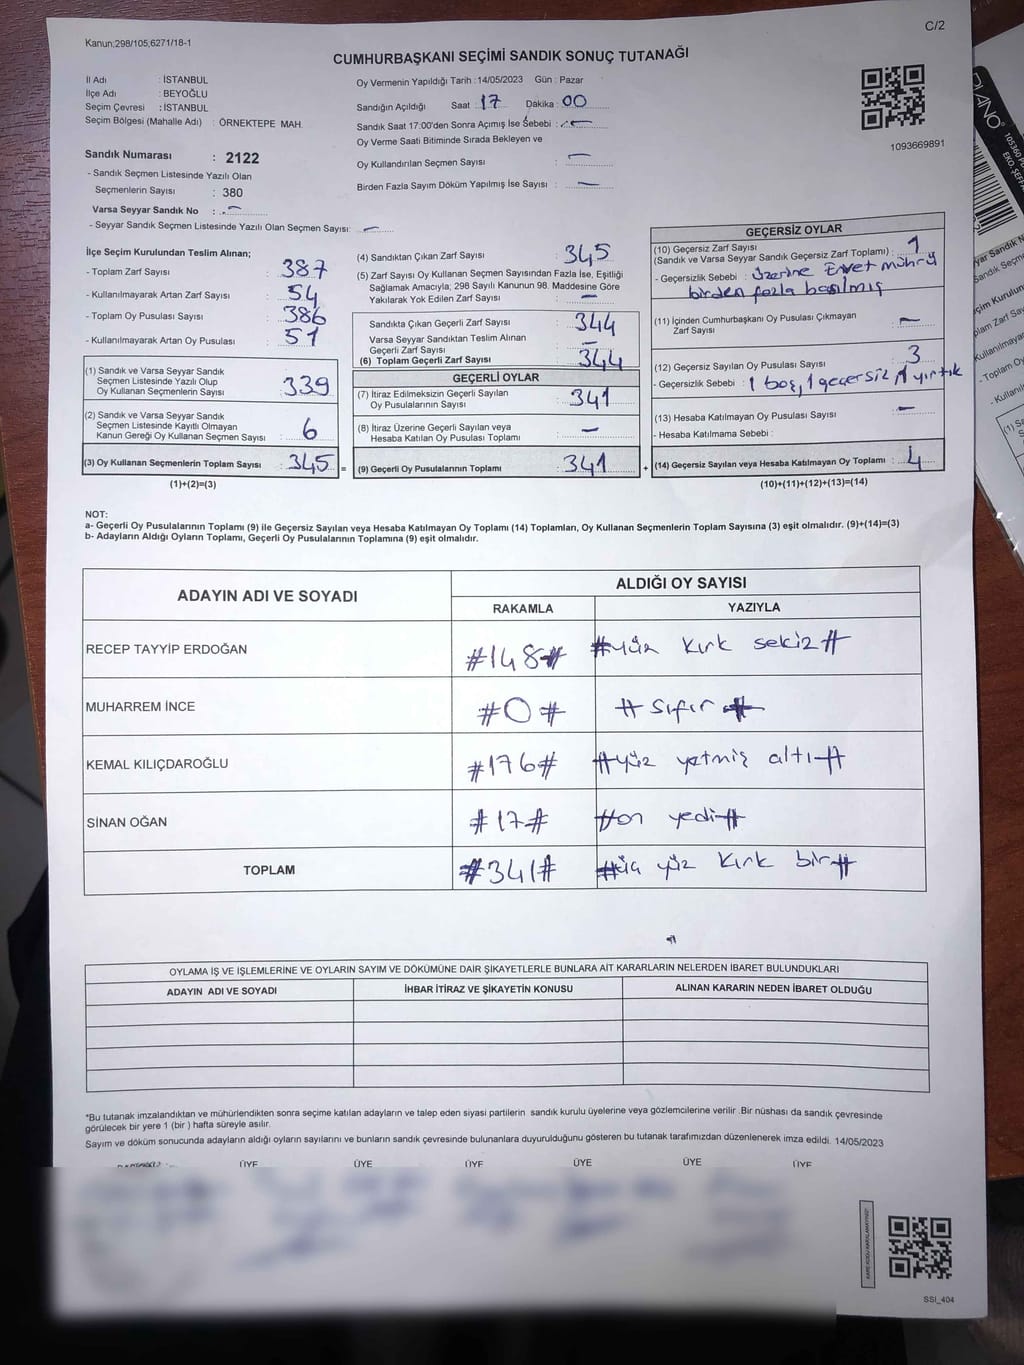 C/2
Kanun;298/105,6271/18-1
CUMHURBAŞKANI SEÇİMİ SANDIK SONUÇ TUTANAĞI
İl Adı : İSTANBUL
İlçe Adı : BEYOĞLU
Seçim Çevresi : İSTANBUL
Seçim Bölgesi (Mahalle Adı) : ÖRNEKTEPE MAH.
Sandık Numarası : 2122
- Sandık Seçmen Listesinde Yazılı Olan
Seçmenlerin Sayısı : 380
Varsa Seyyar Sandık No : -
- Seyyar Sandık Seçmen Listesinde Yazılı Olan Seçmen Sayısı: -
Oy Vermenin Yapıldığı Tarih : 14/05/2023 Gün : Pazar
Sandığın Açıldığı Saat : 17 Dakika : 00
Sandık Saat 17:00'den Sonra Açımış İse Sebebi : -
Oy Verme Saati Bitiminde Sırada Bekleyen ve
Oy Kullandırılan Seçmen Sayısı : -
Birden Fazla Sayım Döküm Yapılmış İse Sayısı : -
1093669891
İlçe Seçim Kurulundan Teslim Alınan;
- Toplam Zarf Sayısı : 387
- Kullanılmayarak Artan Zarf Sayısı : 54
- Toplam Oy Pusulası Sayısı : 386
- Kullanılmayarak Artan Oy Pusulası : 51
(1) Sandık ve Varsa Seyyar Sandık
Seçmen Listesinde Yazılı Olup
Oy Kullanan Seçmenlerin Sayısı : 339
(2) Sandık ve Varsa Seyyar Sandık
Seçmen Listesinde Kayıtlı Olmayan
Kanun Gereği Oy Kullanan Seçmen Sayısı : 6
(3) Oy Kullanan Seçmenlerin Toplam Sayısı : 345
(1)+(2)=(3)
(4) Sandıktan Çıkan Zarf Sayısı : 345
(5) Zarf Sayısı Oy Kullanan Seçmen Sayısından Fazla İse, Eşitliği
Sağlamak Amacıyla; 298 Sayılı Kanunun 98. Maddesine Göre
Yakılarak Yok Edilen Zarf Sayısı : -
Sandıkta Çıkan Geçerli Zarf Sayısı : 344
Varsa Seyyar Sandıktan Teslim Alınan
Geçerli Zarf Sayısı : -
(6) Toplam Geçerli Zarf Sayısı : 344
GEÇERLİ OYLAR
(7) İtiraz Edilmeksizin Geçerli Sayılan
Oy Pusulalarının Sayısı : 341
(8) İtiraz Üzerine Geçerli Sayılan veya
Hesaba Katılan Oy Pusulası Toplamı : -
= (9) Geçerli Oy Pusulalarının Toplamı : 341
GEÇERSİZ OYLAR
(10) Geçersiz Zarf Sayısı
(Sandık ve Varsa Seyyar Sandık Geçersiz Zarf Toplamı) : 1
- Geçersizlik Sebebi : üzerine Evet mührü
birden fazla basılmış
(11) İçinden Cumhurbaşkanı Oy Pusulası Çıkmayan
Zarf Sayısı : -
(12) Geçersiz Sayılan Oy Pusulası Sayısı : 3
- Geçersizlik Sebebi : 1 boş, 1 geçersiz, 1 yırtık
(13) Hesaba Katılmayan Oy Pusulası Sayısı : -
- Hesaba Katılmama Sebebi :
+ (14) Geçersiz Sayılan veya Hesaba Katılmayan Oy Toplamı : 4
(10)+(11)+(12)+(13)=(14)
NOT:
a- Geçerli Oy Pusulalarının Toplamı (9) ile Geçersiz Sayılan veya Hesaba Katılmayan Oy Toplamı (14) Toplamları, Oy Kullanan Seçmenlerin Toplam Sayısına (3) eşit olmalıdır. (9)+(14)=(3)
b- Adayların Aldığı Oyların Toplamı, Geçerli Oy Pusulalarının Toplamına (9) eşit olmalıdır.
ADAYIN ADI VE SOYADI ALDIĞI OY SAYISI
RAKAMLA YAZIYLA
RECEP TAYYİP ERDOĞAN #148# #yüz kırk sekiz#
MUHARREM İNCE #0# #sıfır#
KEMAL KILIÇDAROĞLU #176# #yüz yetmiş altı#
SİNAN OĞAN #17# #on yedi#
TOPLAM #341# #üç yüz kırk bir#
OYLAMA İŞ VE İŞLEMLERİNE VE OYLARIN SAYIM VE DÖKÜMÜNE DAİR ŞİKAYETLERLE BUNLARA AİT KARARLARIN NELERDEN İBARET BULUNDUKLARI
ADAYIN ADI VE SOYADI İHBAR İTİRAZ VE ŞİKAYETİN KONUSU ALINAN KARARIN NEDEN İBARET OLDUĞU
*Bu tutanak imzalandıktan ve mühürlendikten sonra seçime katılan adayların ve talep eden siyasi partilerin sandık kurulu üyelerine veya gözlemcilerine verilir .Bir nüshası da sandık çevresinde
görülecek bir yere 1 (bir ) hafta süreyle asılır.
Sayım ve döküm sonucunda adayların aldığı oyların sayılarını ve bunların sandık çevresinde bulunanlara duyurulduğunu gösteren bu tutanak tarafımızdan düzenlenerek imza edildi. 14/05/2023
ÜYE ÜYE ÜYE ÜYE ÜYE ÜYE
SSI_404